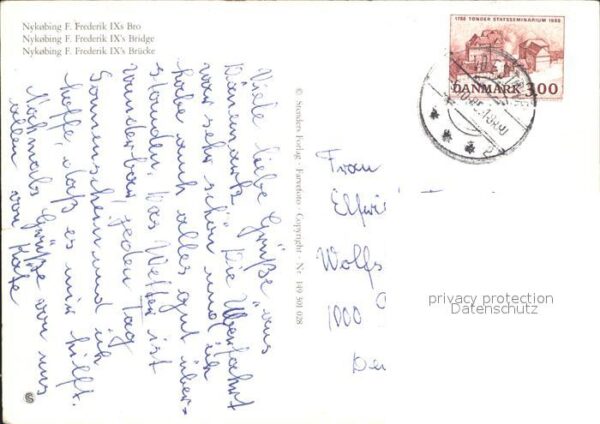 Nykøbing F. Frederik IXs Bro
Nykøbing F. Frederik IX's Bridge
Nykøbing F. Frederik IX's Brücke
Viele liebe Grüße aus
Dänemark. Die Überfahrt
war sehr schön und ich
habe auch alles gut über-
standen. Das Wetter ist
wunderbar, jeden Tag
Sonnenschein und ich
hoffe, daß es mir hilft.
Nochmals Grüße von uns
allen von Käte
© Stenders Forlag - Farvefoto - Copyright - Nr. 149 501 028
1788 TØNDER STATSSEMINARIUM 1988
DANMARK 3.00
Frau
Elfri
Wolfs
1000
privacy protection
Datenschutz